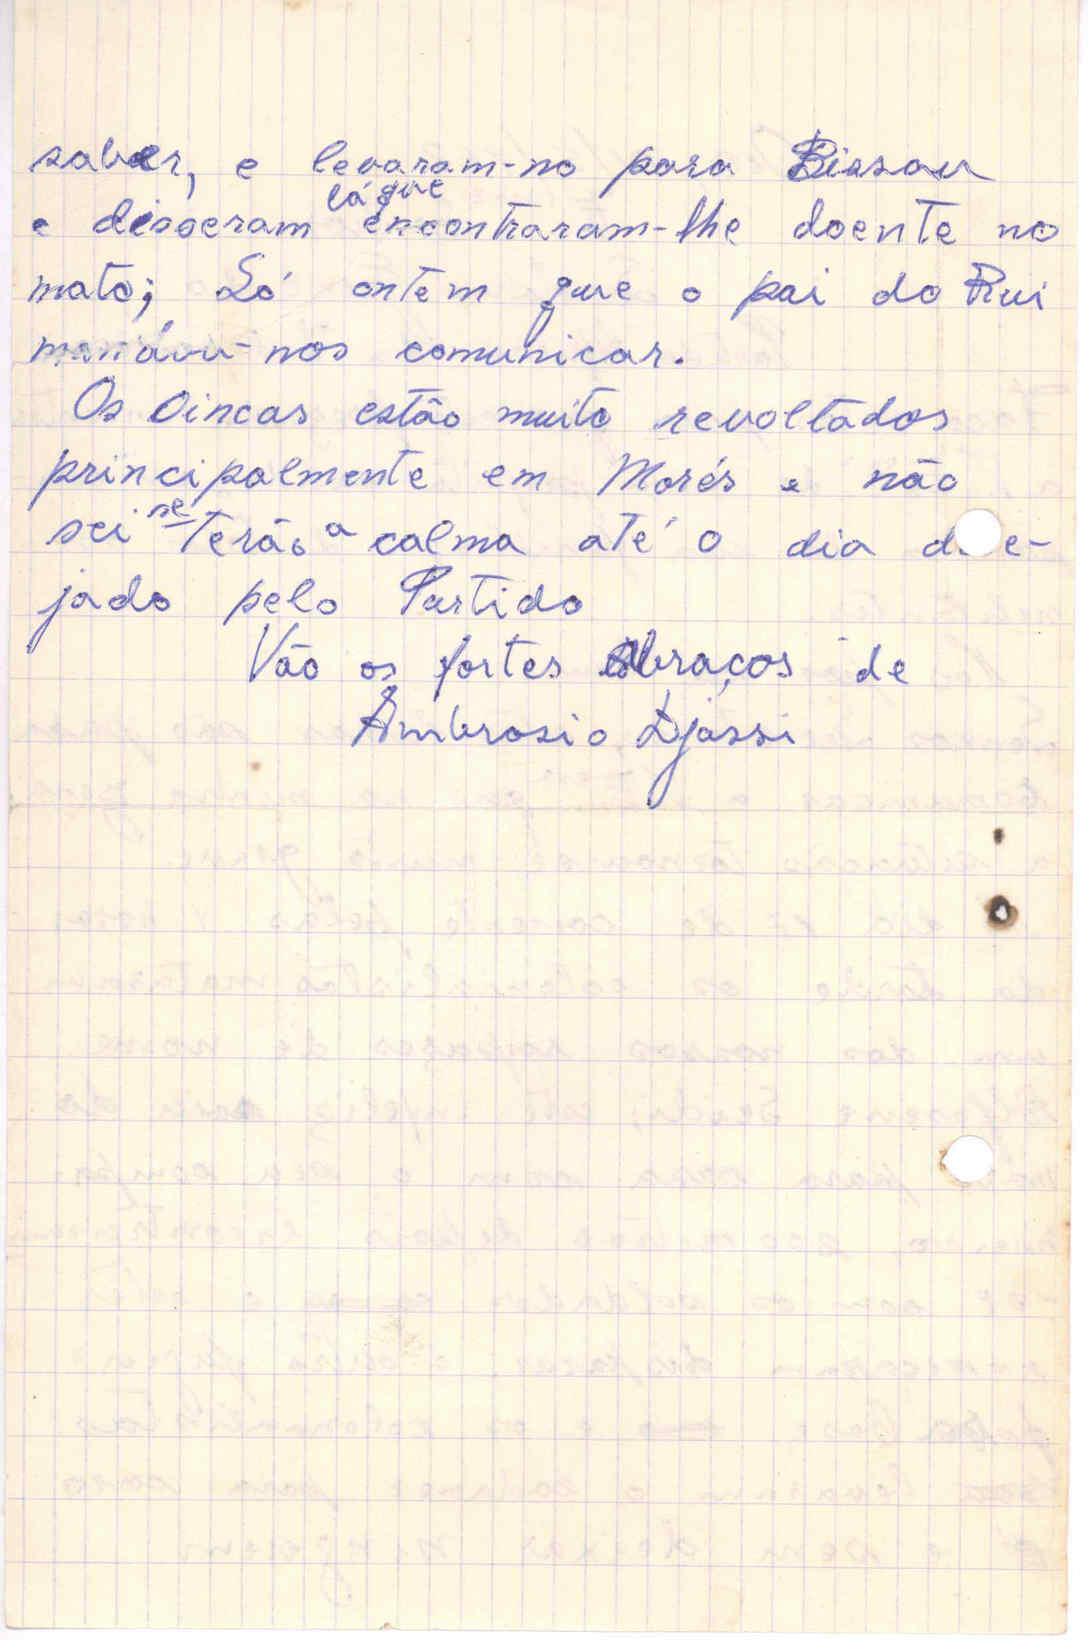 saber, e levaram-no para Bissau
e disseram lá que encontraram-lhe doente no
mato; Só ontem que o pai do Rui
mandou-nos comunicar.
Os Oincas estão muito revoltados
principalmente em Morés e não
sei se terão a calma até o dia de e-
jado pelo Partido
Vão os fortes abraços de
Ambrosio Djassi